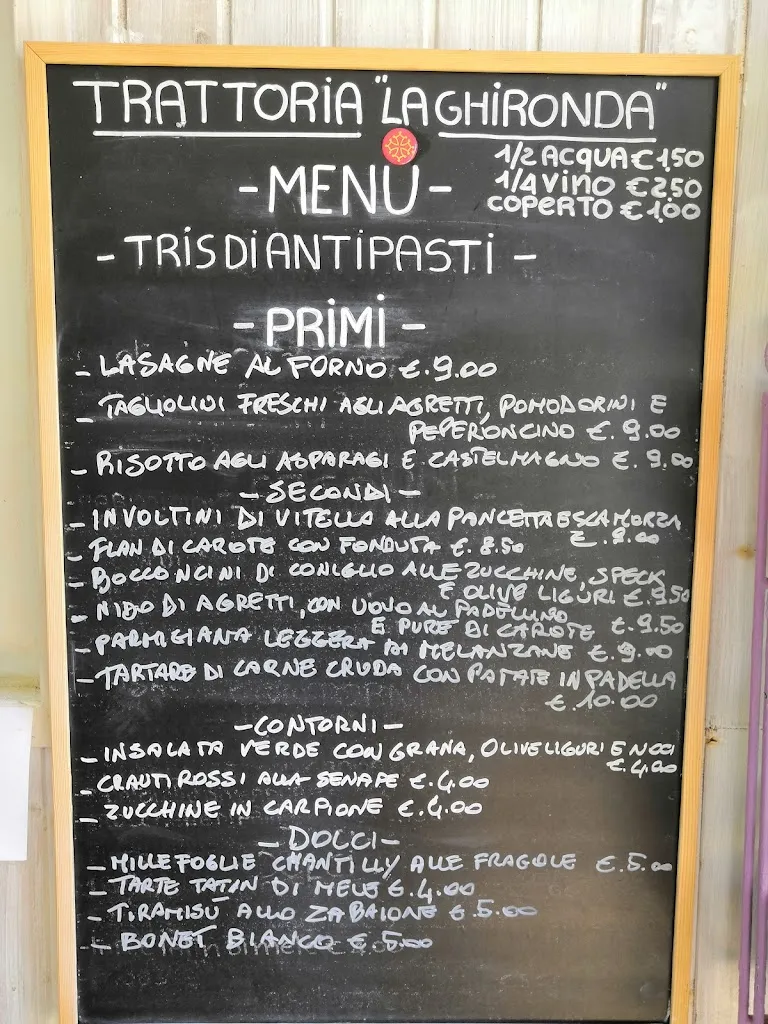 TRATTORIA "LA GHIRONDA"
1/2 ACQUA € 1,50
- MENU -
1/4 VINO € 2,50
COPERTO € 1,00
- TRIS DI ANTIPASTI -
- PRIMI -
- LASAGNE AL FORNO €. 9.00
- TAGLIOLINI FRESCHI AGLI AGRETTI, POMODORINI E
PEPERONCINO €. 9.00
- RISOTTO AGLI ASPARAGI E CASTELMAGNO €. 9.00
- SECONDI -
- INVOLTINI DI VITELLO ALLA PANCETTA E SCAMORZA
€. 9.00
- FLAN DI CAROTE CON FONDUTA €. 8.50
- BOCCONCINI DI CONIGLIO ALLE ZUCCHINE, SPECK
E OLIVE LIGURI €. 9.50
- NIDO DI AGRETTI, CON UOVO AL PADELLINO
E PURE DI CAROTE €. 9.50
- PARMIGIANA LEGGERA DI MELANZANE €. 9.00
- TARTARE DI CARNE CRUDA CON PATATE IN PADELLA
€. 10.00
- CONTORNI -
- INSALATA VERDE CON GRANA, OLIVE LIGURI E NOCI
€. 4.00
- CRAUTI ROSSI ALLA SENAPE €. 4.00
- ZUCCHINE IN CARPIONE €. 4.00
- DOLCI -
- MILLEFOGLIE CHANTILLY ALLE FRAGOLE €. 5.00
- TARTE TATIN DI MELE €. 4.00
- TIRAMISÚ ALLO ZABAIONE €. 5.00
- BONET BIANCO € 5.00